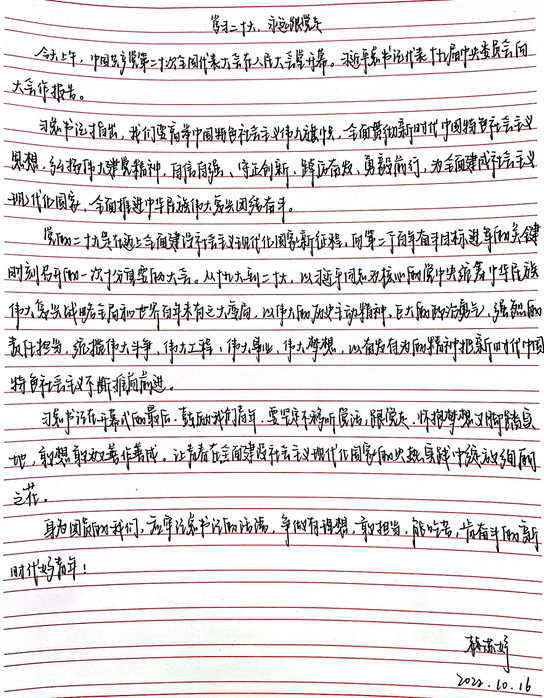 学习二十大，永远跟党走
今天上午，中国共产党第二十次全国代表大会在人民大会堂开幕。习近平总书记代表十九届中央委员会向
大会作报告。
习总书记指出，我们要高举中国特色社会主义伟大旗帜，全面贯彻新时代中国特色社会主义
思想，弘扬伟大建党精神，自信自强、守正创新，踔厉奋发、勇毅前行，为全面建成社会主义
现代化国家、全面推进中华民族伟大复兴团结奋斗。
党的二十大是在迈上全面建设社会主义现代化国家新征程，向第二个百年奋斗目标进军的关键
时刻召开的一次十分重要的大会。从十九大到二十大，以习近平同志为核心的党中央统筹中华民族
伟大复兴战略全局和世界百年未有之大变局，以伟大的历史主动精神，巨大的政治勇气，强烈的
责任担当，统揽伟大斗争，伟大工程，伟大事业，伟大梦想，以奋发有为的精神把新时代中国
特色社会主义不断推向前进。
习总书记在开幕式的最后，鼓励我们青年，要坚定不移听党话，跟党走，怀抱梦想又脚踏实
地，敢想敢为又善作善成，让青春在全面建设社会主义现代化国家的火热实践中绽放绚丽
之花。
身为团员的我们，应牢记总书记的话语，争做有理想，敢担当，能吃苦，肯奋斗的新
时代好青年！
2022.10.16